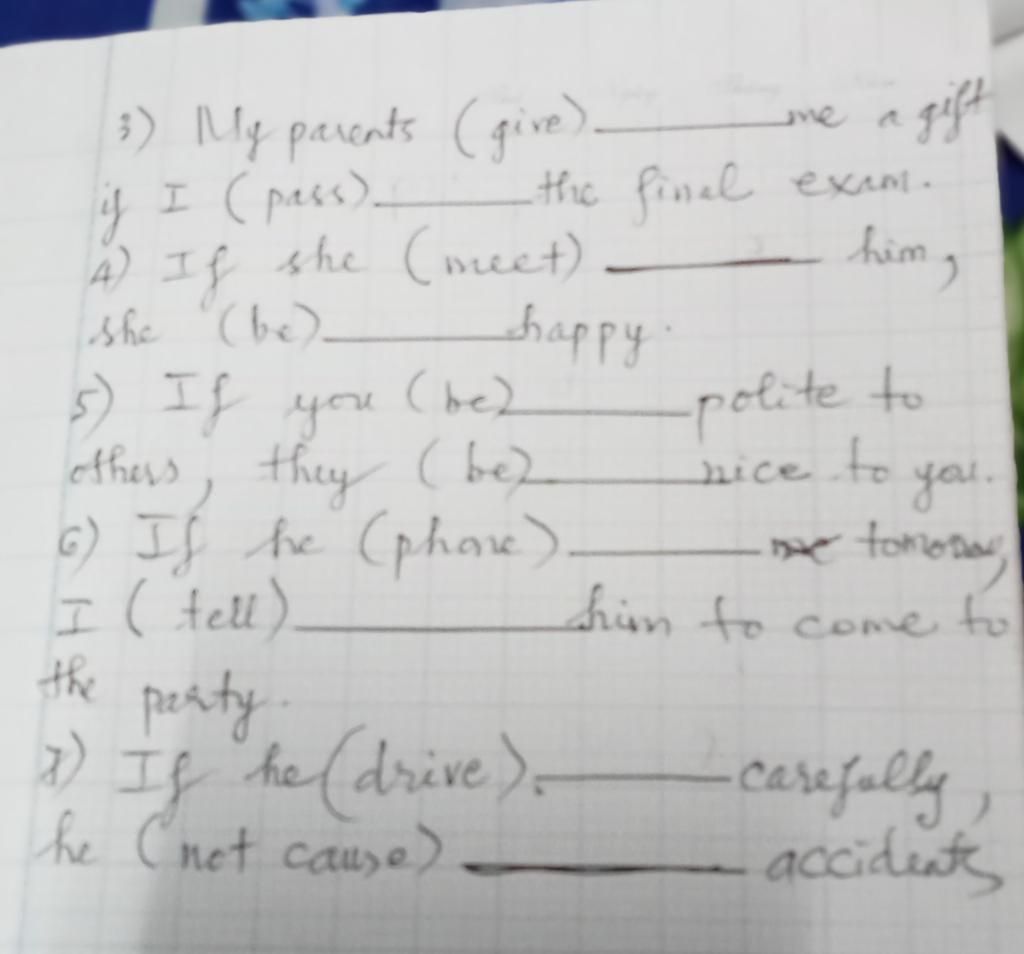 3) My parents (give) ________ me a gift
if I (pass) ________ the final exam.
4) If she (meet) ________ him,
she (be) ________ happy.
5) If you (be) ________ polite to
others, they (be) ________ nice to you.
6) If he (phone) ________ tomorrow,
I (tell) ________ him to come to
the party.
7) If he (drive). ________ carefully,
he (not cause) ________ accidents